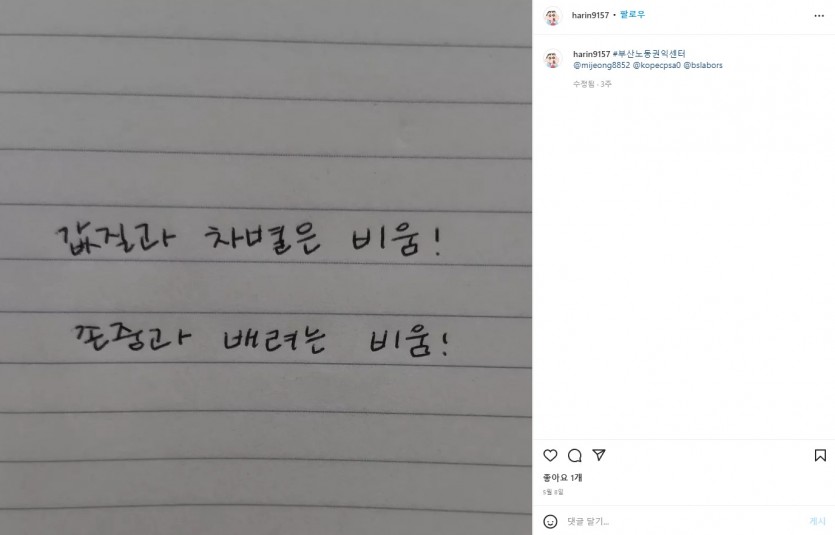 값질과 차별은 비움!
존중과 배려는 비움!
harin9157 • 팔로우
harin9157 #부산노동권익센터
@mijeong8852 @kopecpsa0 @bslabors
수정됨 · 3주
좋아요 1개
5월 8일
댓글 달기...
게시